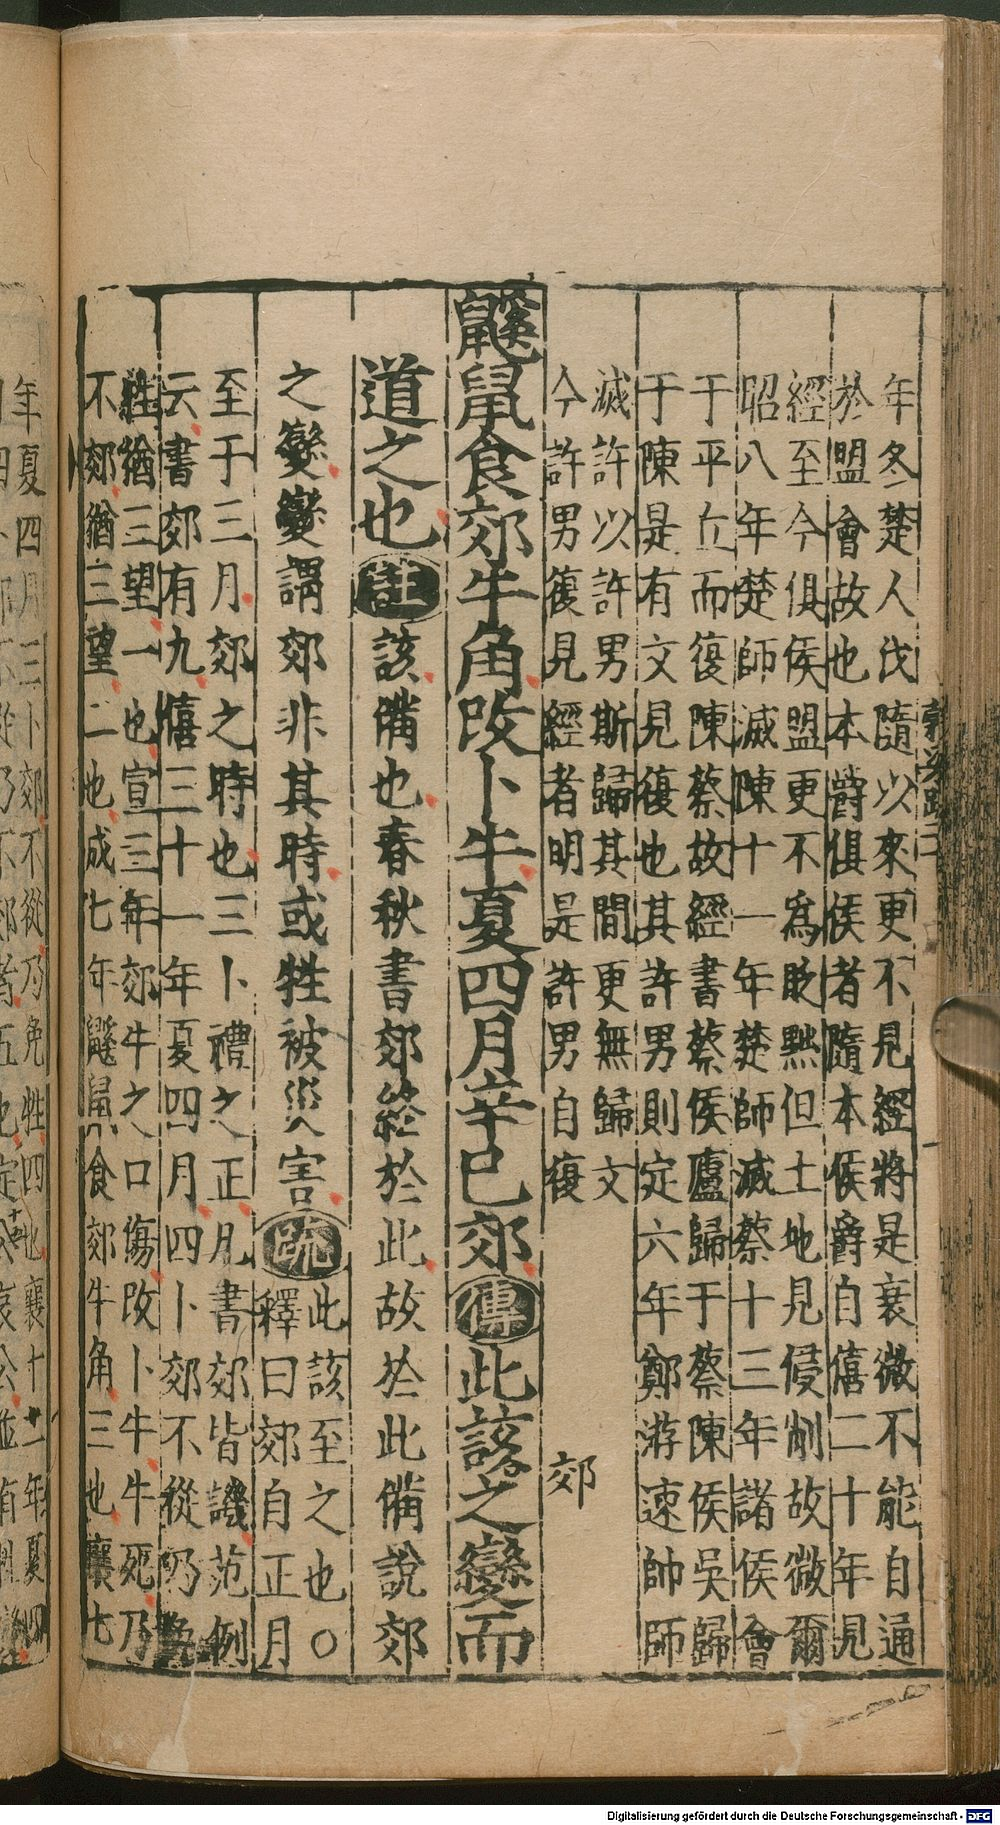 年冬楚人伐隨以來更不見經將是衰微不能自通
於盟會故也本爵俱侯者隨本侯爵自僖二十年見
經至今俱侯盟更不爲貶黜但土地見侵削故微爾
昭八年楚師滅陳十一年楚師滅蔡十三年諸侯會
于平丘而復陳蔡故經書蔡侯廬歸于蔡陳侯吳歸
于陳是有文見復也其許男則定六年鄭游速帥師
滅許以許男斯歸其間更無歸文
今許男復見經者明是許男自復 郊
鼷鼠食郊牛角改卜牛夏四月辛巳郊傳此該之變而
道之也註該備也春秋書郊終於此故於此備說郊
之變變謂郊非其時或牲被災害疏
此該至之也〇
釋曰郊自正月
至于三月郊之時也三卜禮之正凡書郊皆譏范例
云書郊有九僖三十一年夏四月四卜郊不從乃免
牲猶三望一也宣三年郊牛之口傷改卜牛牛死乃
不郊猶三望二也成七年鼷鼠食郊牛角三也襄七
年夏四月三卜郊不從乃免牲四也襄十一年夏四
Digitalisierung gefördert durch die Deutsche Forschungsgemeinschaft - DFG